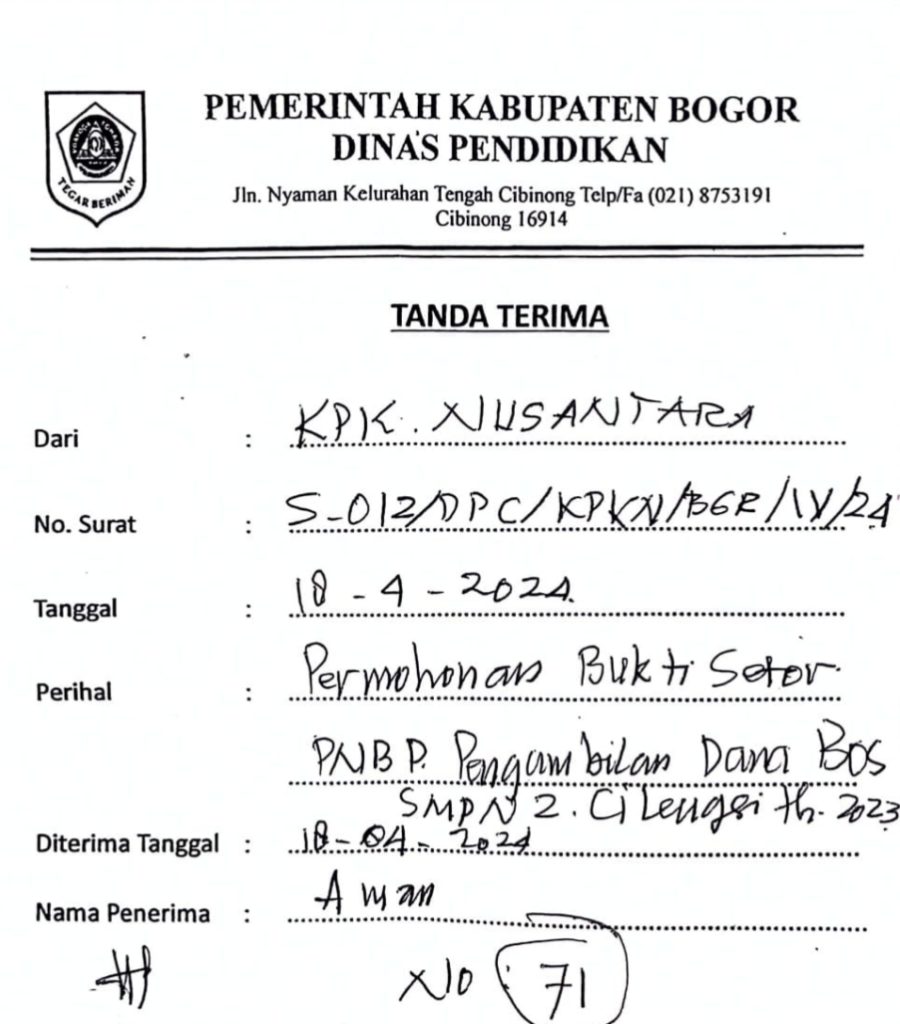 PEMERINTAH KABUPATEN BOGOR
DINAS PENDIDIKAN
Jln. Nyaman Kelurahan Tengah Cibinong Telp/Fa (021) 8753191
Cibinong 16914
TEGAR BERIMAN
TANDA TERIMA
Dari : KPK. NUSANTARA
No. Surat : S-012/DPC/KPKN/BGR/IV/24
Tanggal : 18 - 4 - 2024.
Perihal : Permohonan Bukti Setor
PNBP. Pengambilan Dana BOS
SMPN 2. Cileungsi th. 2023
Diterima Tanggal : 18-04-2024
Nama Penerima : Aman
No : 71